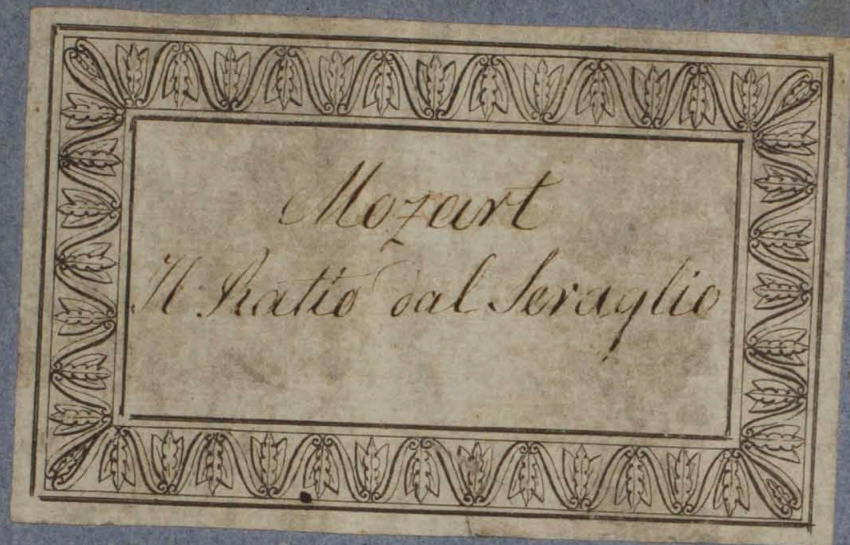 Mozart
Il Ratto dal Seraglio